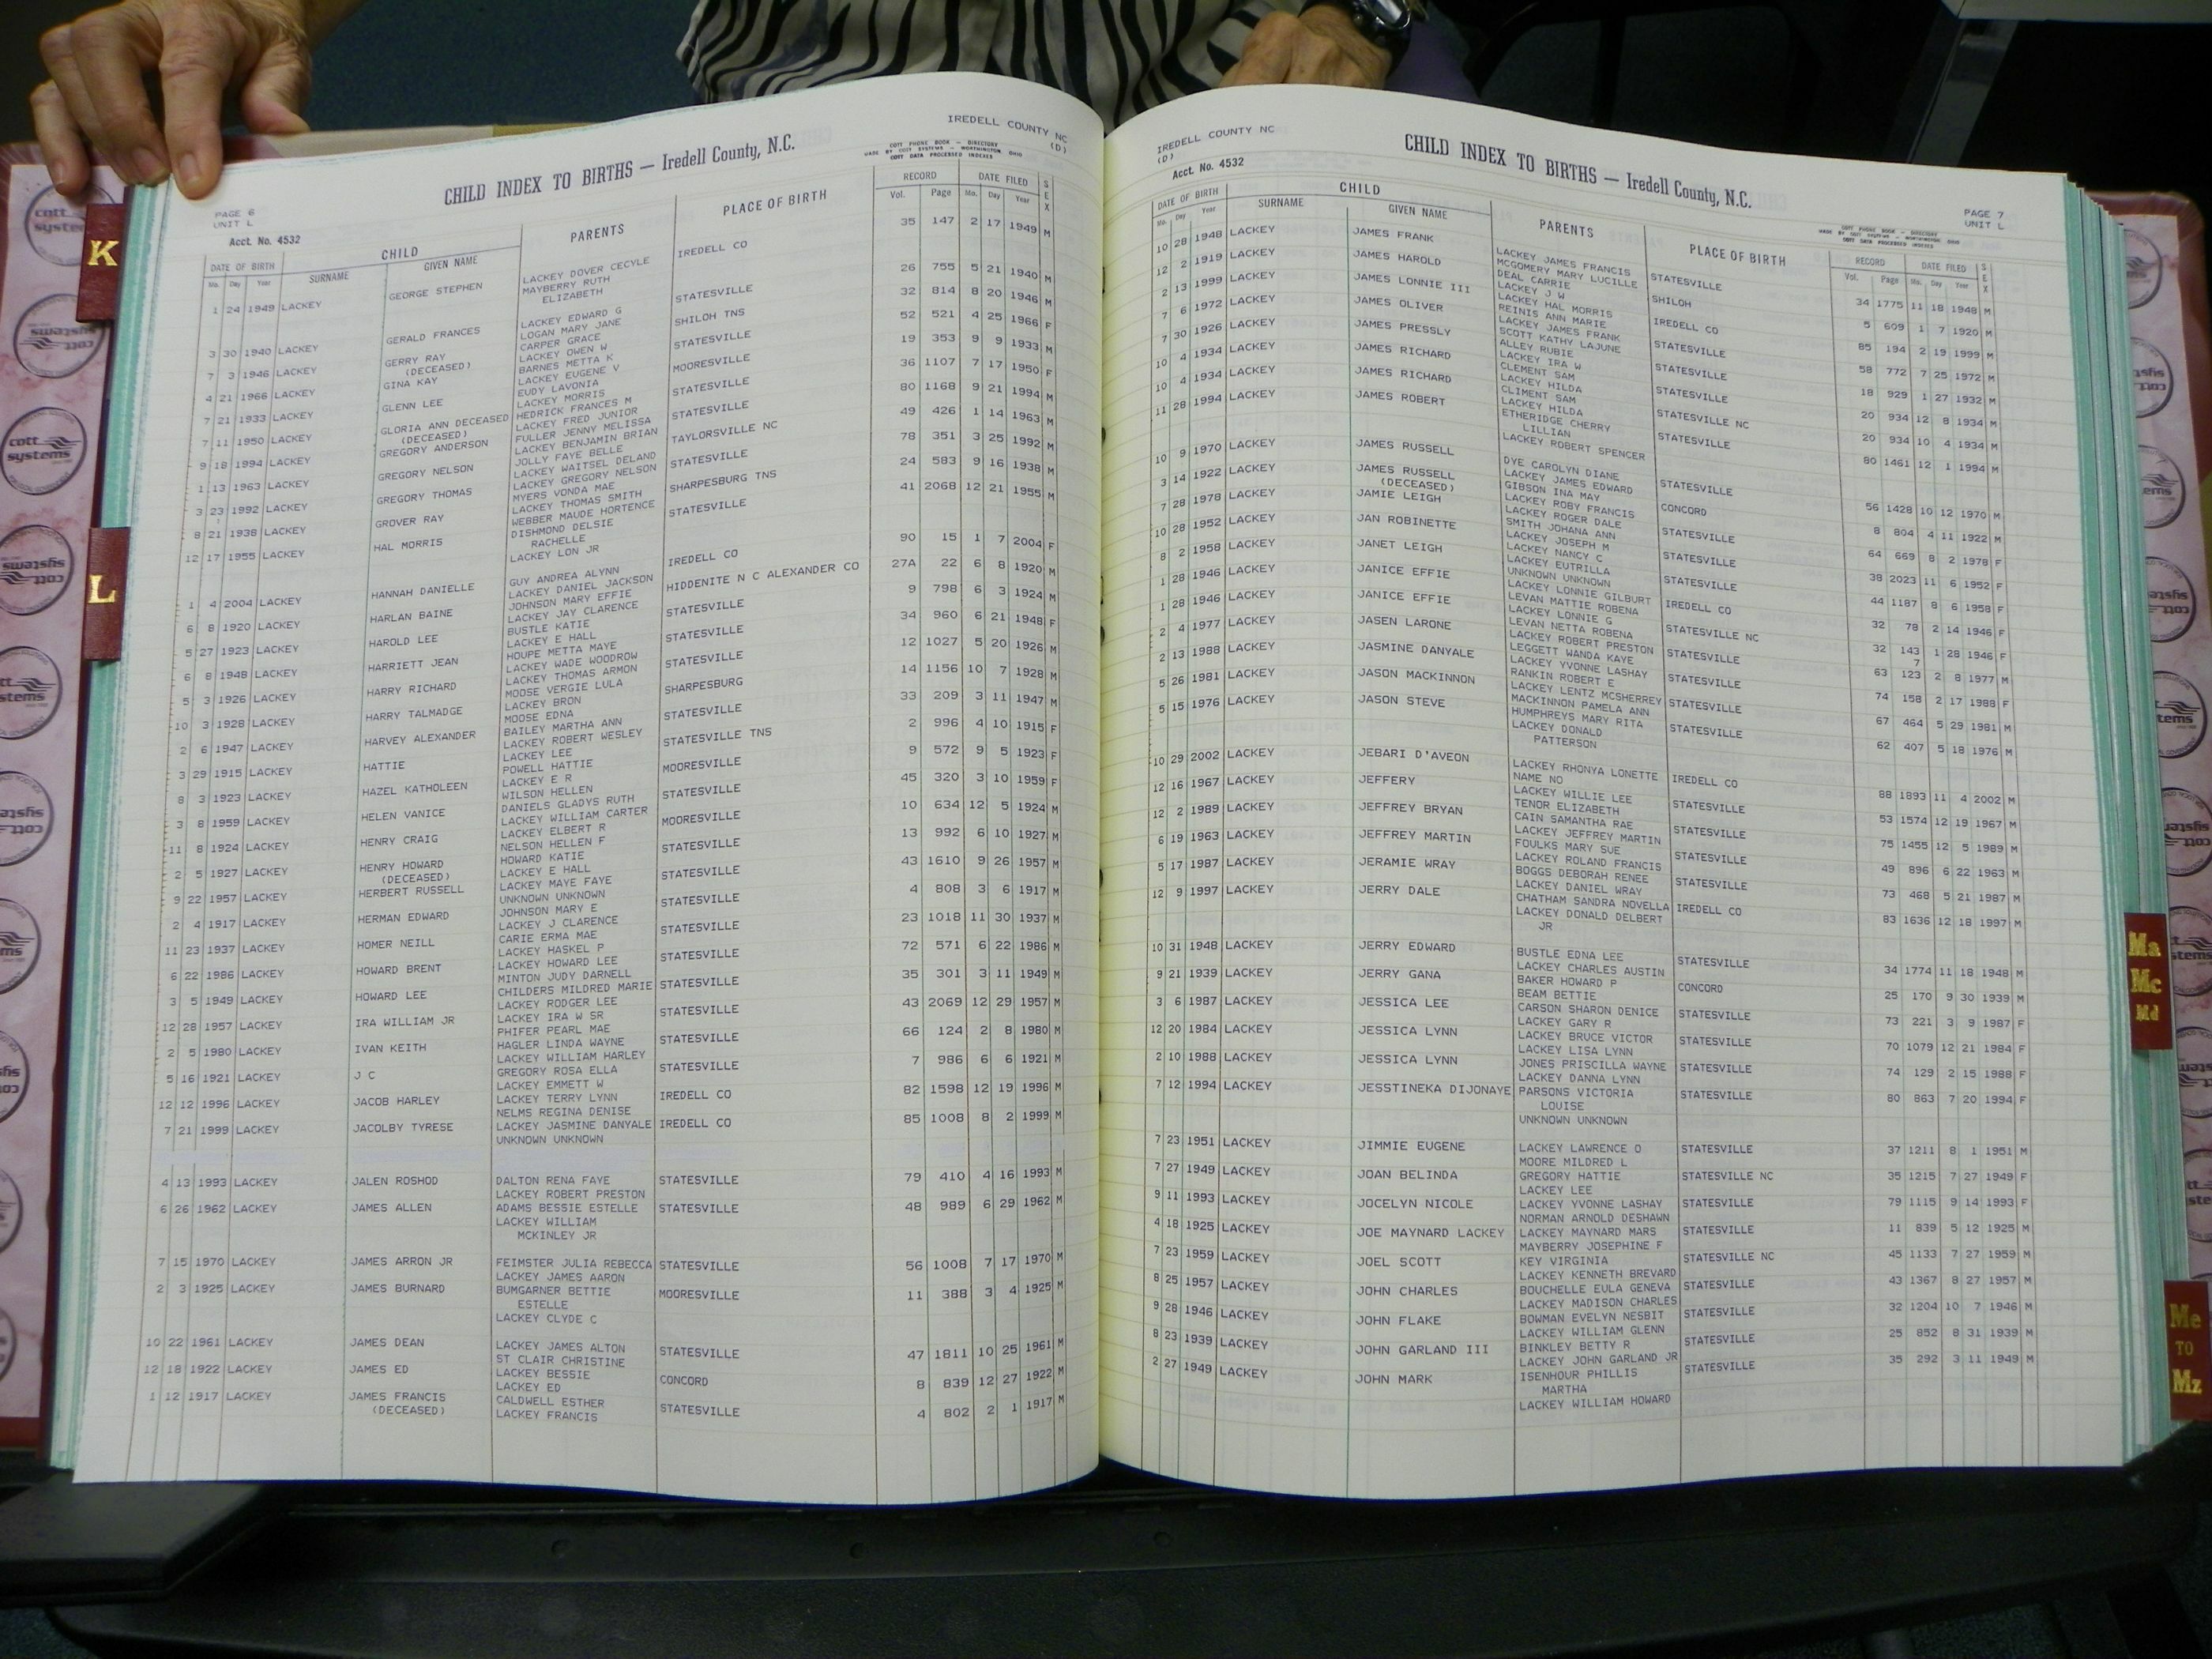 IREDELL COUNTY NC
(D)
CHILD INDEX TO BIRTHS — Iredell County, N.C.
COTT PHONE BOOK — DIRECTORY
MADE BY COTT SYSTEMS — WORTHINGTON, OHIO
COTT DATA PROCESSED INDEXES
PAGE 6
UNIT L
Acct. No. 4532
DATE OF BIRTH CHILD PARENTS PLACE OF BIRTH RECORD DATE FILED SEX
Mo. Day Year SURNAME GIVEN NAME Vol. Page Mo. Day Year
1 24 1949 LACKEY GEORGE STEPHEN LACKEY DOVER CECYLE IREDELL CO 35 147 2 17 1949 M
MAYBERRY RUTH
ELIZABETH
3 30 1940 LACKEY GERALD FRANCES LACKEY EDWARD G STATESVILLE 26 755 5 21 1940 M
LOGAN MARY JANE
7 3 1946 LACKEY GERRY RAY CARPER GRACE SHILOH TNS 32 814 8 20 1946 M
(DECEASED) LACKEY OWEN W
4 21 1966 LACKEY GINA KAY BARNES METTA K STATESVILLE 52 521 4 25 1966 F
LACKEY EUGENE V
7 21 1933 LACKEY GLENN LEE EUDY LAVONIA MOORESVILLE 19 353 9 9 1933 M
LACKEY MORRIS
7 11 1950 LACKEY GLORIA ANN DECEASED HEDRICK FRANCES M STATESVILLE 36 1107 7 17 1950 F
(DECEASED) LACKEY FRED JUNIOR
9 18 1994 LACKEY GREGORY ANDERSON FULLER JENNY MELISSA STATESVILLE 80 1168 9 21 1994 M
LACKEY BENJAMIN BRIAN
1 13 1963 LACKEY GREGORY NELSON JOLLY FAYE BELLE TAYLORSVILLE NC 49 426 1 14 1963 M
LACKEY WAITSEL DELAND
3 23 1992 LACKEY GREGORY THOMAS LACKEY GREGORY NELSON STATESVILLE 78 351 3 25 1992 M
MYERS VONDA MAE
8 21 1938 LACKEY GROVER RAY LACKEY THOMAS SMITH SHARPESBURG TNS 24 583 9 16 1938 M
WEBBER MAUDE HORTENCE
12 17 1955 LACKEY HAL MORRIS DISHMOND DELSIE STATESVILLE 41 2068 12 21 1955 M
RACHELLE
LACKEY LON JR
1 4 2004 LACKEY HANNAH DANIELLE GUY ANDREA ALYNN IREDELL CO 90 15 1 7 2004 F
LACKEY DANIEL JACKSON
6 8 1920 LACKEY HARLAN BAINE JOHNSON MARY EFFIE HIDDENITE N C ALEXANDER CO 27A 22 6 8 1920 M
LACKEY JAY CLARENCE
5 27 1923 LACKEY HAROLD LEE BUSTLE KATIE STATESVILLE 9 798 6 3 1924 M
LACKEY E HALL
6 8 1948 LACKEY HARRIETT JEAN HOUPE METTA MAYE STATESVILLE 34 960 6 21 1948 F
LACKEY WADE WOODROW
5 3 1926 LACKEY HARRY RICHARD LACKEY THOMAS ARMON STATESVILLE 12 1027 5 20 1926 M
MOOSE VERGIE LULA
10 3 1928 LACKEY HARRY TALMADGE LACKEY BRON SHARPESBURG 14 1156 10 7 1928 M
MOOSE EDNA
2 6 1947 LACKEY HARVEY ALEXANDER BAILEY MARTHA ANN STATESVILLE 33 209 3 11 1947 M
LACKEY ROBERT WESLEY
3 29 1915 LACKEY HATTIE LACKEY LEE STATESVILLE TNS 2 996 4 10 1915 F
POWELL HATTIE
8 3 1923 LACKEY HAZEL KATHOLEEN LACKEY E R MOORESVILLE 9 572 9 5 1923 F
WILSON HELLEN
3 8 1959 LACKEY HELEN VANICE DANIELS GLADYS RUTH STATESVILLE 45 320 3 10 1959 F
LACKEY WILLIAM CARTER
11 8 1924 LACKEY HENRY CRAIG LACKEY ELBERT R MOORESVILLE 10 634 12 5 1924 M
NELSON HELLEN F
2 5 1927 LACKEY HENRY HOWARD HOWARD KATIE STATESVILLE 13 992 6 10 1927 M
(DECEASED) LACKEY E HALL
9 22 1957 LACKEY HERBERT RUSSELL LACKEY MAYE FAYE STATESVILLE 43 1610 9 26 1957 M
UNKNOWN UNKNOWN
2 4 1917 LACKEY HERMAN EDWARD JOHNSON MARY E STATESVILLE 4 808 3 6 1917 M
LACKEY J CLARENCE
11 23 1937 LACKEY HOMER NEILL CARIE ERMA MAE STATESVILLE 23 1018 11 30 1937 M
LACKEY HASKEL P
6 22 1986 LACKEY HOWARD BRENT LACKEY HOWARD LEE STATESVILLE 72 571 6 22 1986 M
MINTON JUDY DARNELL
3 5 1949 LACKEY HOWARD LEE CHILDERS MILDRED MARIE STATESVILLE 35 301 3 11 1949 M
LACKEY RODGER LEE
12 28 1957 LACKEY IRA WILLIAM JR LACKEY IRA W SR STATESVILLE 43 2069 12 29 1957 M
PHIFER PEARL MAE
2 5 1980 LACKEY IVAN KEITH HAGLER LINDA WAYNE STATESVILLE 66 124 2 8 1980 M
LACKEY WILLIAM HARLEY
5 16 1921 LACKEY J C GREGORY ROSA ELLA STATESVILLE 7 986 6 6 1921 M
LACKEY EMMETT W
12 12 1996 LACKEY JACOB HARLEY LACKEY TERRY LYNN IREDELL CO 82 1598 12 19 1996 M
NELMS REGINA DENISE
7 21 1999 LACKEY JACOLBY TYRESE LACKEY JASMINE DANYALE IREDELL CO 85 1008 8 2 1999 M
UNKNOWN UNKNOWN
4 13 1993 LACKEY JALEN ROSHOD DALTON RENA FAYE STATESVILLE 79 410 4 16 1993 M
LACKEY ROBERT PRESTON
6 26 1962 LACKEY JAMES ALLEN ADAMS BESSIE ESTELLE STATESVILLE 48 989 6 29 1962 M
LACKEY WILLIAM
MCKINLEY JR
7 15 1970 LACKEY JAMES ARRON JR FEIMSTER JULIA REBECCA STATESVILLE 56 1008 7 17 1970 M
LACKEY JAMES AARON
2 3 1925 LACKEY JAMES BURNARD BUMGARNER BETTIE MOORESVILLE 11 388 3 4 1925 M
ESTELLE
LACKEY CLYDE C
10 22 1961 LACKEY JAMES DEAN LACKEY JAMES ALTON STATESVILLE 47 1811 10 25 1961 M
ST CLAIR CHRISTINE
12 18 1922 LACKEY JAMES ED LACKEY BESSIE CONCORD 8 839 12 27 1922 M
LACKEY ED
1 12 1917 LACKEY JAMES FRANCIS CALDWELL ESTHER STATESVILLE 4 802 2 1 1917 M
(DECEASED) LACKEY FRANCIS
IREDELL COUNTY NC
(D)
Acct. No. 4532
CHILD INDEX TO BIRTHS — Iredell County, N.C.
PAGE 7
UNIT L
COTT PHONE BOOK — DIRECTORY
MADE BY COTT SYSTEMS — WORTHINGTON, OHIO
COTT DATA PROCESSED INDEXES
DATE OF BIRTH CHILD PARENTS PLACE OF BIRTH RECORD DATE FILED SEX
Mo. Day Year SURNAME GIVEN NAME Vol. Page Mo. Day Year
10 28 1948 LACKEY JAMES FRANK LACKEY JAMES FRANCIS STATESVILLE 34 1775 11 18 1948 M
MCGOMERY MARY LUCILLE
12 2 1919 LACKEY JAMES HAROLD DEAL CARRIE SHILOH 5 609 1 7 1920 M
LACKEY J W
2 13 1999 LACKEY JAMES LONNIE III LACKEY HAL MORRIS IREDELL CO 85 194 2 19 1999 M
REINIS ANN MARIE
7 6 1972 LACKEY JAMES OLIVER LACKEY JAMES FRANK STATESVILLE 58 772 7 25 1972 M
SCOTT KATHY LAJUNE
7 30 1926 LACKEY JAMES PRESSLY ALLEY RUBIE STATESVILLE 18 929 1 27 1932 M
LACKEY IRA W
10 4 1934 LACKEY JAMES RICHARD CLEMENT SAM STATESVILLE 20 934 12 8 1934 M
LACKEY HILDA
10 4 1934 LACKEY JAMES RICHARD CLIMENT SAM STATESVILLE NC 20 934 10 4 1934 M
LACKEY HILDA
11 28 1994 LACKEY JAMES ROBERT ETHERIDGE CHERRY STATESVILLE 80 1461 12 1 1994 M
LILLIAN
LACKEY ROBERT SPENCER
10 9 1970 LACKEY JAMES RUSSELL DYE CAROLYN DIANE STATESVILLE 56 1428 10 12 1970 M
LACKEY JAMES EDWARD
3 14 1922 LACKEY JAMES RUSSELL GIBSON INA MAY CONCORD 8 804 4 11 1922 M
(DECEASED) LACKEY ROBY FRANCIS
7 28 1978 LACKEY JAMIE LEIGH LACKEY ROGER DALE STATESVILLE 64 669 8 2 1978 F
SMITH JOHANA ANN
10 28 1952 LACKEY JAN ROBINETTE LACKEY JOSEPH M STATESVILLE 38 2023 11 6 1952 F
LACKEY NANCY C
8 2 1958 LACKEY JANET LEIGH LACKEY EUTRILLA IREDELL CO 44 1187 8 6 1958 F
UNKNOWN UNKNOWN
1 28 1946 LACKEY JANICE EFFIE LACKEY LONNIE GILBURT STATESVILLE NC 32 78 2 14 1946 F
LEVAN MATTIE ROBENA
1 28 1946 LACKEY JANICE EFFIE LACKEY LONNIE G STATESVILLE 32 143 1 28 1946 F
LEVAN NETTA ROBENA 7
2 4 1977 LACKEY JASEN LARONE LACKEY ROBERT PRESTON STATESVILLE 63 123 2 8 1977 M
LEGGETT WANDA KAYE
2 13 1988 LACKEY JASMINE DANYALE LACKEY YVONNE LASHAY STATESVILLE 74 158 2 17 1988 F
RANKIN ROBERT E
5 26 1981 LACKEY JASON MACKINNON LACKEY LENTZ MCSHERREY STATESVILLE 67 464 5 29 1981 M
MACKINNON PAMELA ANN
5 15 1976 LACKEY JASON STEVE HUMPHREYS MARY RITA 62 407 5 18 1976 M
LACKEY DONALD
PATTERSON
10 29 2002 LACKEY JEBARI D'AVEON LACKEY RHONYA LONETTE IREDELL CO 88 1893 11 4 2002 M
NAME NO
12 16 1967 LACKEY JEFFERY LACKEY WILLIE LEE STATESVILLE 53 1574 12 19 1967 M
TENOR ELIZABETH
12 2 1989 LACKEY JEFFREY BRYAN CAIN SAMANTHA RAE STATESVILLE 75 1455 12 5 1989 M
LACKEY JEFFREY MARTIN
6 19 1963 LACKEY JEFFREY MARTIN FOULKS MARY SUE STATESVILLE 49 896 6 22 1963 M
LACKEY ROLAND FRANCIS
5 17 1987 LACKEY JERAMIE WRAY BOGGS DEBORAH RENEE STATESVILLE 73 468 5 21 1987 M
LACKEY DANIEL WRAY
12 9 1997 LACKEY JERRY DALE CHATHAM SANDRA NOVELLA IREDELL CO 83 1636 12 18 1997 M
LACKEY DONALD DELBERT
JR
10 31 1948 LACKEY JERRY EDWARD BUSTLE EDNA LEE STATESVILLE 34 1774 11 18 1948 M
LACKEY CHARLES AUSTIN
9 21 1939 LACKEY JERRY GANA BAKER HOWARD P CONCORD 25 170 9 30 1939 M
BEAM BETTIE
3 6 1987 LACKEY JESSICA LEE CARSON SHARON DENICE STATESVILLE 73 221 3 9 1987 F
LACKEY GARY R
12 20 1984 LACKEY JESSICA LYNN LACKEY BRUCE VICTOR STATESVILLE 70 1079 12 21 1984 F
LACKEY LISA LYNN
2 10 1988 LACKEY JESSICA LYNN JONES PRISCILLA WAYNE STATESVILLE 74 129 2 15 1988 F
LACKEY DANNA LYNN
7 12 1994 LACKEY JESSTINEKA DIJONAYE PARSONS VICTORIA STATESVILLE 80 863 7 20 1994 F
LOUISE
UNKNOWN UNKNOWN
7 23 1951 LACKEY JIMMIE EUGENE LACKEY LAWRENCE O STATESVILLE 37 1211 8 1 1951 M
MOORE MILDRED L
7 27 1949 LACKEY JOAN BELINDA GREGORY HATTIE STATESVILLE NC 35 1215 7 27 1949 F
LACKEY LEE
9 11 1993 LACKEY JOCELYN NICOLE LACKEY YVONNE LASHAY STATESVILLE 79 1115 9 14 1993 F
NORMAN ARNOLD DESHAWN
4 18 1925 LACKEY JOE MAYNARD LACKEY LACKEY MAYNARD MARS STATESVILLE 11 839 5 12 1925 M
MAYBERRY JOSEPHINE F
7 23 1959 LACKEY JOEL SCOTT KEY VIRGINIA STATESVILLE NC 45 1133 7 27 1959 M
LACKEY KENNETH BREVARD
8 25 1957 LACKEY JOHN CHARLES BOUCHELLE EULA GENEVA STATESVILLE 43 1367 8 27 1957 M
LACKEY MADISON CHARLES
9 28 1946 LACKEY JOHN FLAKE BOWMAN EVELYN NESBIT STATESVILLE 32 1204 10 7 1946 M
LACKEY WILLIAM GLENN
8 23 1939 LACKEY JOHN GARLAND III BINKLEY BETTY R STATESVILLE 25 852 8 31 1939 M
LACKEY JOHN GARLAND JR
2 27 1949 LACKEY JOHN MARK ISENHOUR PHILLIS STATESVILLE 35 292 3 11 1949 M
MARTHA
LACKEY WILLIAM HOWARD
K
L
Ma
Mc
Md
Me
TO
Mz
cott
systems